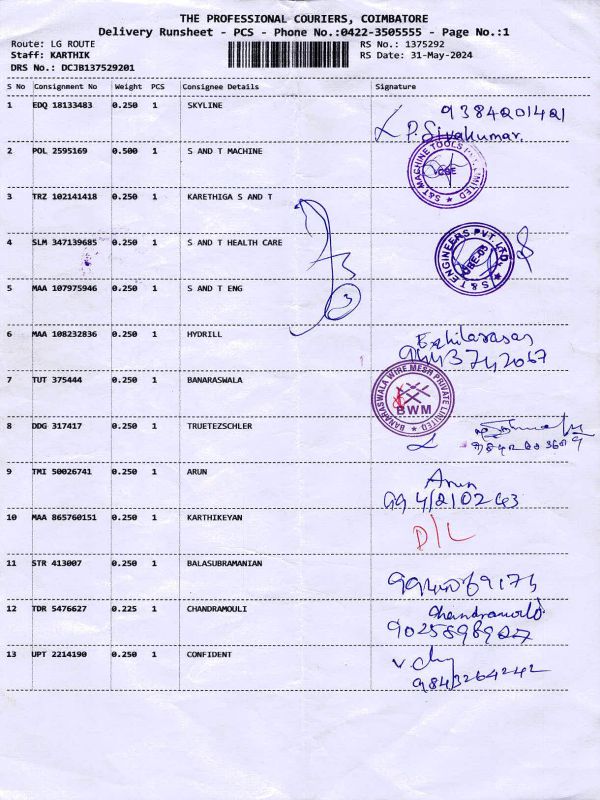 THE PROFESSIONAL COURIERS, COIMBATORE
Delivery Runsheet - PCS - Phone No.:0422-3505555 - Page No.:1
Route: LG ROUTE RS No.: 1375292
Staff: KARTHIK RS Date: 31-May-2024
DRS No.: DCJB137529201
S No Consignment No Weight PCS Consignee Details Signature
1 EDQ 18133483 0.250 1 SKYLINE 9384201421
P. Sivakumar.
2 POL 2595169 0.500 1 S AND T MACHINE S&T MACHINE TOOLS PVT. LIMITED CBE
3 TRZ 102141418 0.250 1 KARETHIGA S AND T
4 SLM 347139685 0.250 1 S AND T HEALTH CARE S & T ENGINEERS PVT. LTD. CBE-03
5 MAA 107975946 0.250 1 S AND T ENG 3
6 MAA 108232836 0.250 1 HYDRILL Ezhilarasan
9443742067
7 TUT 375444 0.250 1 BANARASWALA BANARASWALA WIRE MESH PRIVATE LIMITED BWM
8 DDG 317417 0.250 1 TRUETEZSCHLER
9 TMI 50026741 0.250 1 ARUN Arun
9942102243
10 MAA 865760151 0.250 1 KARTHIKEYAN D/L
11 STR 413007 0.250 1 BALASUBRAMANIAN
12 TDR 5476627 0.225 1 CHANDRAMOULI Chandramouli
9025898927
13 UPT 2214190 0.250 1 CONFIDENT
9843264242